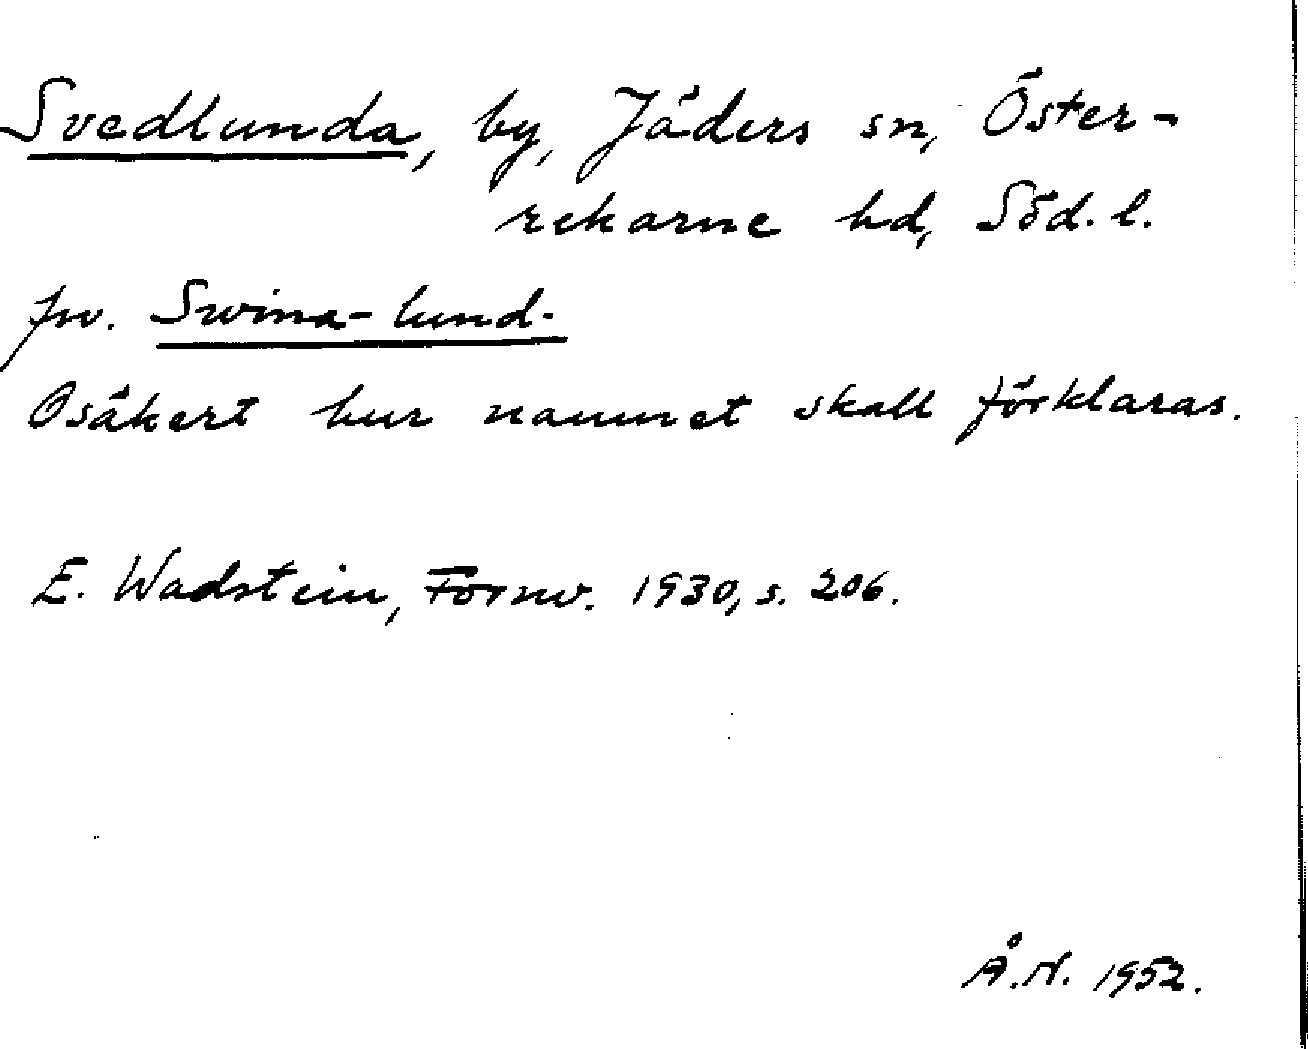 Svedlunda, by, Jäders sn, Öster-
rekarne hd, Söd. l.
fsv. Swina-lund-
Osäkert hur namnet skall förklaras.
E. Wadstein, Fornv. 1930, s. 206.
Å.N. 1952.